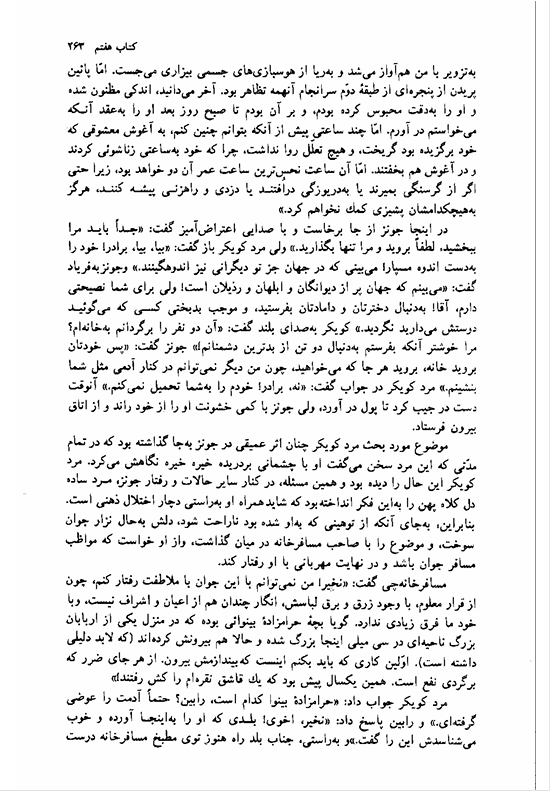 کتاب هفتم ۲۶۳
به‌تزویر با من هم‌آواز می‌شد و به‌ریا از هوسبازی‌های جسمی بیزاری می‌جست. امّا پائین
پریدن از پنجره‌ای از طبقهٔ دوّم سرانجام آنهمه تظاهر بود. آخر می‌دانید، اندکی مظنون شده
و او را به‌دقت محبوس کرده بودم، و بر آن بودم تا صبح روز بعد او را به‌عقد آنکه
می‌خواستم در آورم. امّا چند ساعتی پیش از آنکه بتوانم چنین کنم، به آغوش معشوقی که
خود برگزیده بود گریخت، و هیچ تعلّل روا نداشت، چرا که خود به‌ساعتی زناشوئی کردند
و در آغوش هم بخفتند. امّا آن ساعت نحس‌ترین ساعت عمر آن دو خواهد بود، زیرا حتی
اگر از گرسنگی بمیرند یا به‌دریوزگی درافتند یا دزدی و راهزنی پیشه کنند، هرگز
به‌هیچکدامشان پشیزی کمك نخواهم کرد.»
در اینجا جونز از جا برخاست و با صدایی اعتراض‌آمیز گفت: «جداً باید مرا
ببخشید، لطفاً بروید و مرا تنها بگذارید.» ولی مرد کویکر باز گفت: «بیا، بیا، برادر! خود را
به‌دست اندوه مسپار! می‌بینی که در جهان جز تو دیگرانی نیز اندوهگینند.» وجونزبه‌فریاد
گفت: «می‌بینم که جهان پر از دیوانگان و ابلهان و رذیلان است! ولی برای شما نصیحتی
دارم، آقا! به‌دنبال دخترتان و دامادتان بفرستید، و موجب بدبختی کسی که می‌گوئید
دوستش می‌دارید نگردید.» کویکر به‌صدای بلند گفت: «آن دو نفر را برگردانم به‌خانه‌ام؟
مرا خوشتر آنکه بفرستم به‌دنبال دو تن از بدترین دشمنانم!» جونز گفت: «پس خودتان
بروید خانه، بروید هر جا که می‌خواهید، چون من دیگر نمی‌توانم در کنار آدمی مثل شما
بنشینم.» مرد کویکر در جواب گفت: «نه، برادر! خودم را به‌شما تحمیل نمی‌کنم.» آنوقت
دست در جیب کرد تا پول در آورد، ولی جونز با کمی خشونت او را از خود راند و از اتاق
بیرون فرستاد.
موضوع مورد بحث مرد کویکر چنان اثر عمیقی در جونز به‌جا گذاشته بود که در تمام
مدّتی که این مرد سخن می‌گفت او با چشمانی بردریده خیره خیره نگاهش می‌کرد. مرد
کویکر این حال را دیده بود و همین مسئله، در کنار سایر حالات و رفتار جونز، مرد ساده
دل کلاه پهن را به‌این فکر انداخته‌بود که شاید همراه او به‌راستی دچار اختلال ذهنی است.
بنابراین، به‌جای آنکه از توهینی که به‌او شده بود ناراحت شود، دلش به‌حال نزار جوان
سوخت، و موضوع را با صاحب مسافرخانه در میان گذاشت، واز او خواست که مواظب
مسافر جوان باشد و در نهایت مهربانی با او رفتار کند.
مسافرخانه‌چی گفت: «نخیر! من نمی‌توانم با این جوان با ملاطفت رفتار کنم، چون
از قرار معلوم، با وجود زرق و برق لباسش، انگار چندان هم از اعیان و اشراف نیست، وبا
خود ما فرق زیادی ندارد. گویا بچهٔ حرامزادهٔ بینوائی بوده که در منزل یکی از اربابان
بزرگ ناحیه‌ای در سی میلی اینجا بزرگ شده و حالا هم بیرونش کرده‌اند (که لابد دلیلی
داشته است). اوّلین کاری که باید بکنم اینست که‌بیندازمش بیرون. از هر جای ضرر که
برگردی نفع است. همین یکسال پیش بود که یك قاشق نقره‌ام را کش رفتند!»
مرد کویکر جواب داد: «حرامزادهٔ بینوا کدام است، رابین؟ حتماً آدمت را عوضی
گرفته‌ای.» و رابین پاسخ داد: «نخیر، اخوی! بلدی که او را به‌اینجا آورده و خوب
می‌شناسدش این را گفت.»و به‌راستی، جناب بلد راه هنوز توی مطبخ مسافرخانه درست